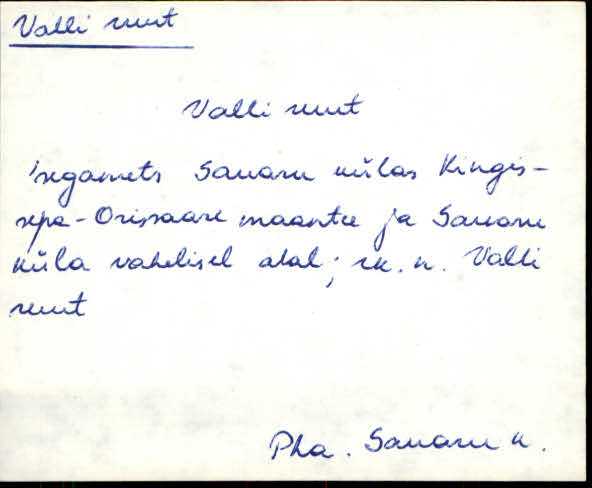 Valli runt
Valli runt
segamets Sauaru külas Kingis-
sepa-Orissaare maantee ja Sauaru
küla vahelisel alal; rk. n. Valli
runt
Pha. Sauaru k.